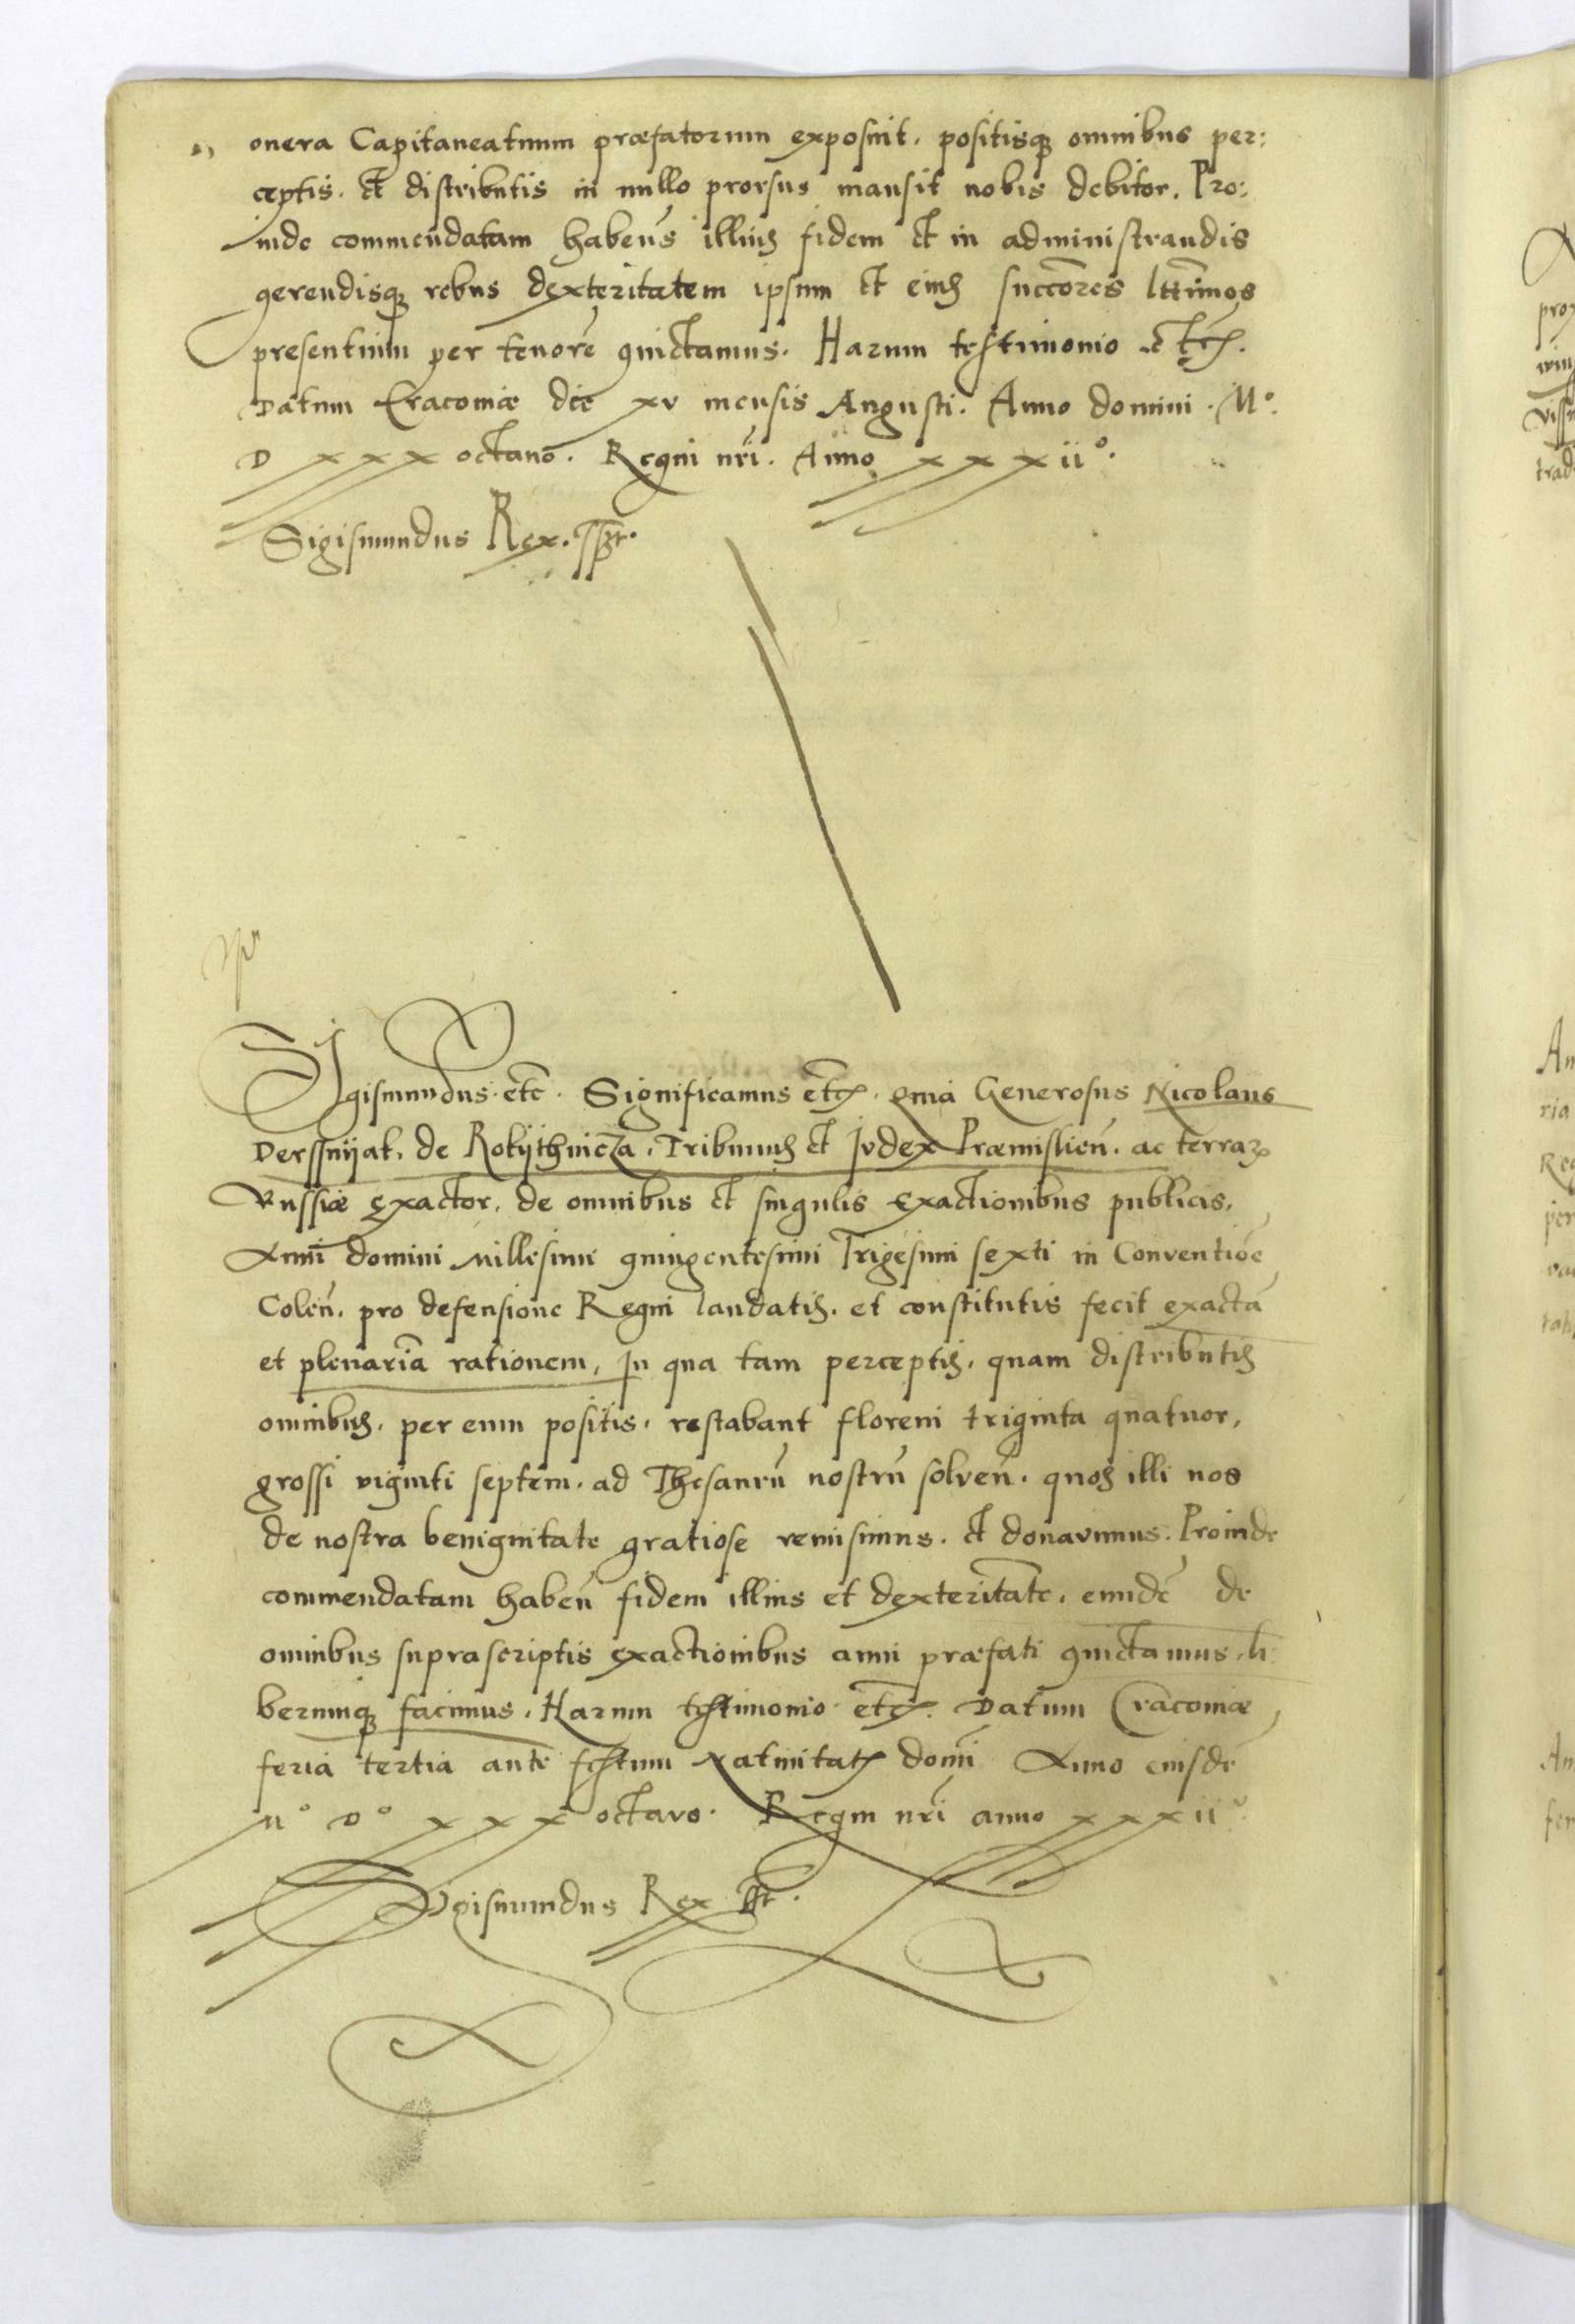 onera Capitaneatuum præfatorum exposuit. positisq; omnibus per:
ceptis. et distributis in nullo prorsus mansit nobis debitor. Pro:
inde commendatam habeñs illius fidem et in administrandis
gerendisq; rebus dexteritatem ipsum et eius succ̄ores lttīmos
presentium per tenorē quictamus. Harum testimonio etc.
Datum Cracouiæ die xv mensis Augusti. Anno domini. M°.
D xxx octauo. Regni nr̄i. Anno xxxii°.
Sigismundus Rex. sszt.
Sigismundus etc. Significamus etc. quia Generosus Nicolaus
Derssnyak. de Rokythnicza. Tribunus et Judex Præmislień. ac terraꝝ
Russiæ exactor. de omnibus et singulis exactionibus publicis.
Anni domini Millesimi quingentesimi Trigesimi sexti in Conventiōe
Coleń. pro defensione Regni laudatis. et constitutis fecit exactā
et plenariā rationem, In qua tam perceptis. quam distributis
omnibus. per eum positis. restabant floreni triginta quatuor,
grossi viginti septem. ad Thesaurū nostrū solveń. quos illi nos
de nostra benignitate gratiose remisimus. et donavimus. Proinde
commendatam habeń fidem illius et dexteritatē. eundē de
omnibus suprascriptis exactionibus anni præfati quictamus. li:
berumq; facimus. Harum testimonio etc. Datum Cracouiæ
feria tertia ante festum Natiuitatis domī Anno eiusdē
M° D° xxx octavo. Regni nr̄i anno xxxii°
Sigismundus Rex sszt.